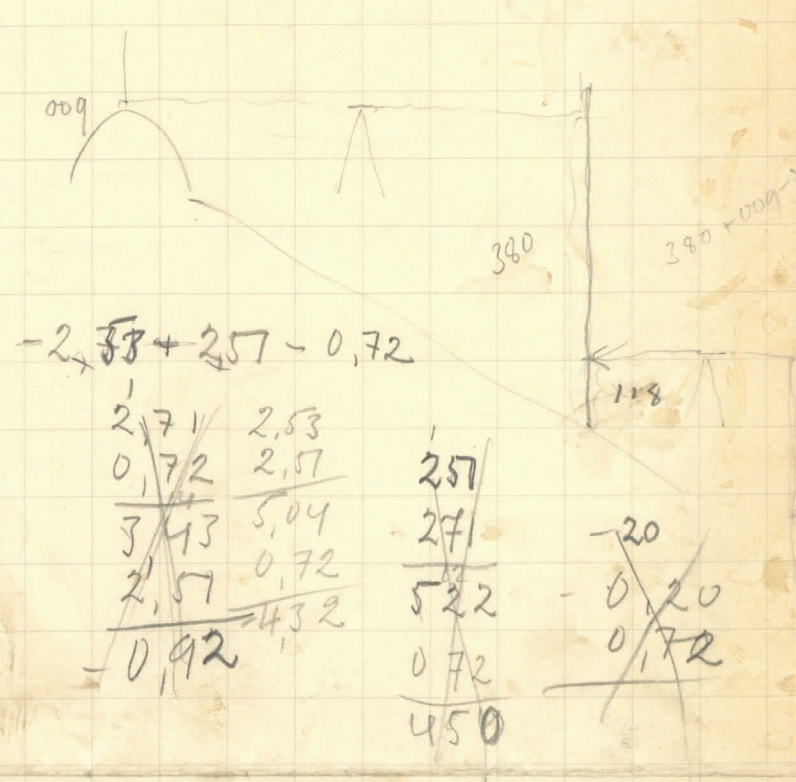 009
380
380 + 009 -
118
-2,53 + 2,51 - 0,72
2,71
0,72
3,43
2,51
-0,92
2,53
2,51
5,04
0,72
-4,32
251
271
522
0 72
450
-20
- 0,20
0,72